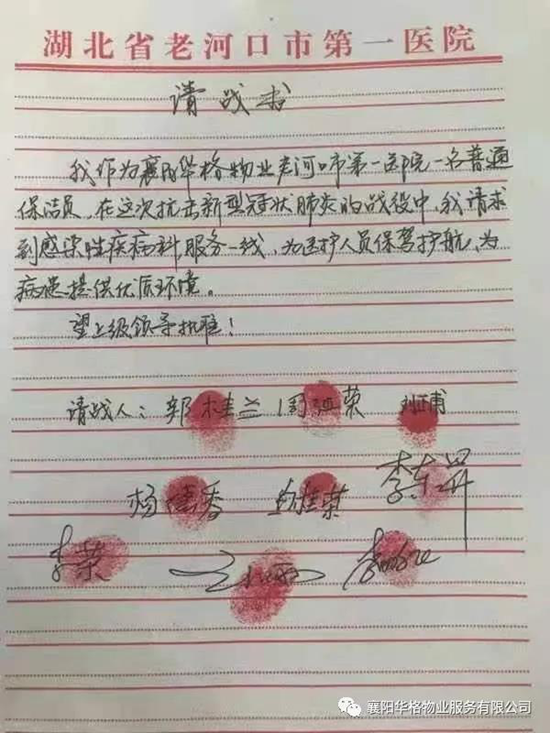 湖北省老河口市第一医院
请战书
我作为襄阳华格物业老河口市第一医院一名普通
保洁员，在这次抗击新型冠状肺炎的战役中，我请求
到感染性疾病科服务一线，为医护人员保驾护航，为
病患提供优质环境。
望上级领导批准！
请战人：郭桂兰 周 荣
杨 香 荣 李
李荣
襄阳华格物业服务有限公司